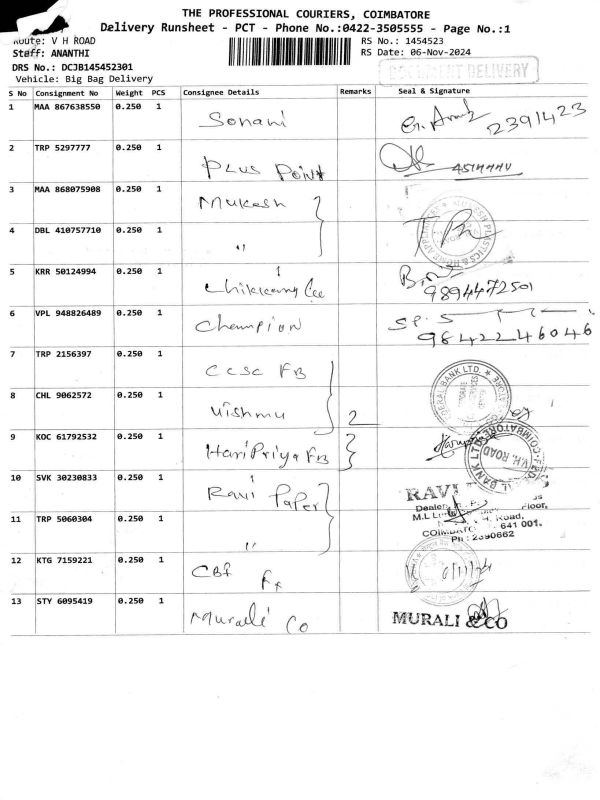 THE PROFESSIONAL COURIERS, COIMBATORE
Delivery Runsheet - PCT - Phone No.:0422-3505555 - Page No.:1
Route: V H ROAD
RS No.: 1454523
Staff: ANANTHI
RS Date: 06-Nov-2024
DRS No.: DCJB145452301
DOCUMENT DELIVERY
Vehicle: Big Bag Delivery
S No Consignment No Weight PCS Consignee Details Remarks Seal & Signature
1 MAA 867638550 0.250 1 Sonani 2391423
2 TRP 5297777 0.250 1 Plus Point
3 MAA 868075908 0.250 1 Mukesh
4 DBL 410757710 0.250 1 "
5 KRR 50124994 0.250 1 9894472501
6 VPL 948826489 0.250 1 Champion SP. S 9842246046
7 TRP 2156397 0.250 1 CCSC FB
8 CHL 9062572 0.250 1 Vishmu 2
9 KOC 61792532 0.250 1 HariPriya FB
V.H. ROAD
10 SVK 30230833 0.250 1 Ravi Paper RAVI
Dealers
Floor,
11 TRP 5060304 0.250 1 " Road,
641 001.
Ph : 2390662
12 KTG 7159221 0.250 1 CBF
13 STY 6095419 0.250 1 Murali Co MURALI & CO